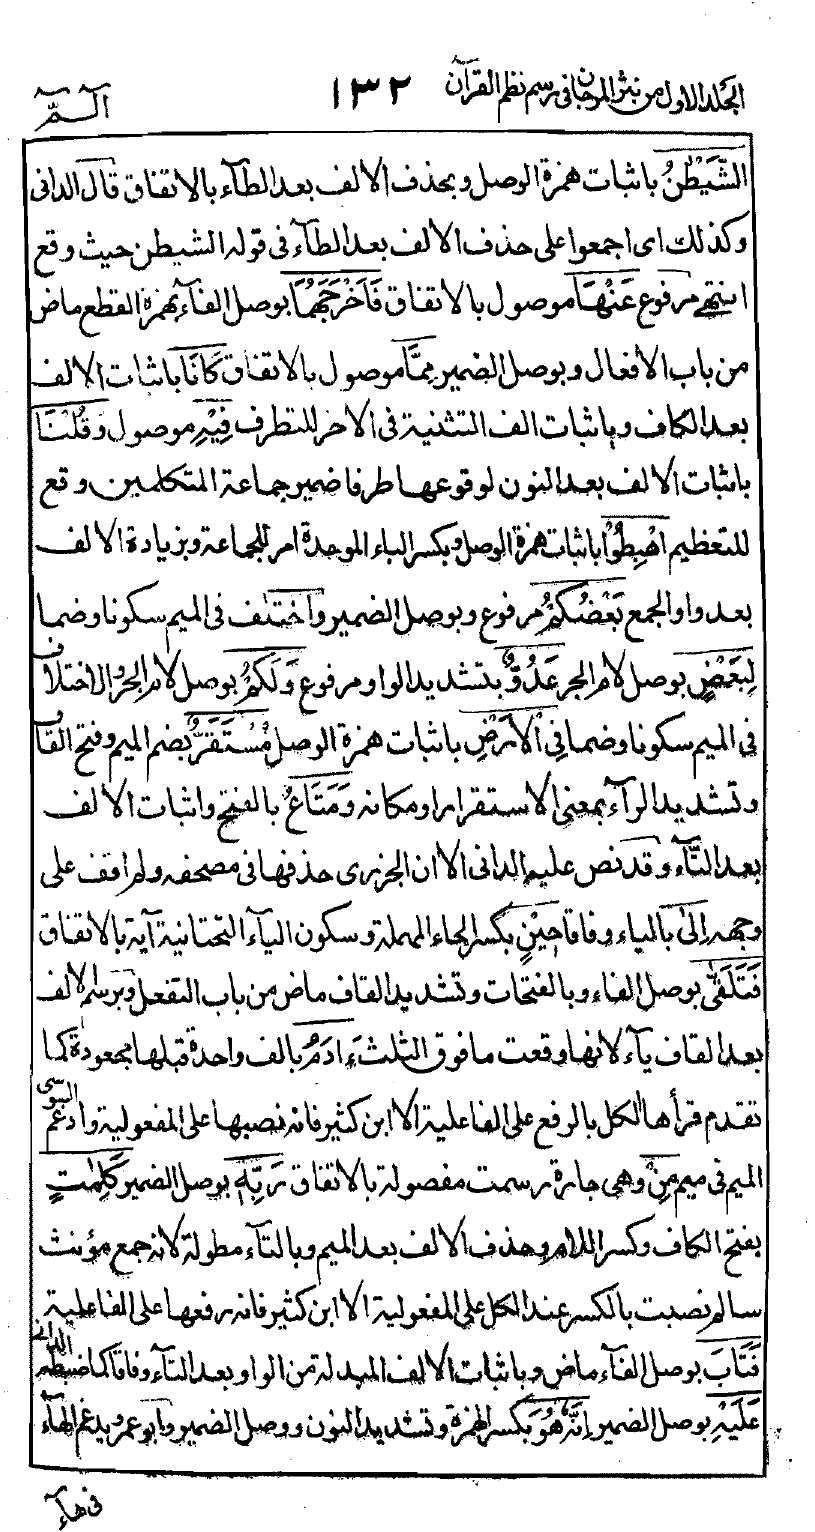 المجلد الاول من نثر المرجان فى رسم نظم القرآن ١٣٢ الٓـمّٓ
الشَّيْطٰنُ باثبات همزة الوصل وبحذف الالف بعد الطآء بالاتفاق قال الدانى
وكذلك اى اجمعوا على حذف الالف بعد الطآء فى قوله الشيطن حيث وقع
انتهى مرفوع عَنْهَا موصول بالاتفاق فَاَخْرَجَهُمَا بوصل الفآء بهمزة القطع ماض
من باب الافعال وبوصل الضمير مِمَّا موصول بالاتفاق كَانَا باثبات الالف
بعد الكاف وباثبات الف التثنية فى الاخر للتطرف فِيْهِ موصول وَقُلْنَا
باثبات الالف بعد النون لوقوعها طرفا ضمير جماعة المتكلمين وقع
للتعظيم اهْبِطُوْا باثبات همزة الوصل وبكسر الباء الموحدة امر للجماعة وبزيادة الالف
بعد واو الجمع بَعْضُكُمْ مرفوع وبوصل الضمير واختلف فى الميم سكونا وضما
لِبَعْضٍ بوصل لام الجر عَدُوٌّ بتشديد الواو مرفوع وَلَكُمْ بوصل لام الجر والاختلاف
فى الميم سكونا وضما فِى الْاَرْضِ باثبات همزة الوصل مُسْتَقَرٌّ بضم الميم وفتح القاف
وتشديد الرآء بمعنى الاستقرار او مكانه وَمَتَاعٌ بالفتح واثبات الالف
بعد التآء وقد نص عليه الدانى الا ان الجزرى حذفها فى مصحفه ولم اقف على
وجهه اِلٰى بالياء وفاقا حِيْنٍ بكسر الحاء المهملة وسكون اليآء التحتانية آية بالاتفاق
فَتَلَقّٰٓى بوصل الفاء وبالفتحات وتشديد القاف ماض من باب التفعل وبرسم الالف
بعد القاف يآء لانها وقعت ما فوق الثلث ءَادَمُ بالف واحدة قبلها مجعودة كما
تقدم قرأها الكل بالرفع على الفاعلية الا ابن كثير فانه نصبها على المفعولية وادغم السوسى
الميم فى ميم مِنْ وهى جارة رسمت مفصولة بالاتفاق رَبِّهٖ بوصل الضمير كَلِمٰتٍ
بفتح الكاف وكسر اللام وحذف الالف بعد الميم وبالتآء مطولة لانه جمع مؤنث
سالم نصبت بالكسر عند الكل على المفعولية الا ابن كثير فانه رفعها على الفاعلية
فَتَابَ بوصل الفآء ماض وباثبات الالف المبدلة من الواو بعد التآء وفاقا كما ضبطه الدانى
عَلَيْهِ بوصل الضمير اِنَّهٗ هُوَ بكسر الهمزة وتشديد النون ووصل الضمير وابو عمرو يدغم الهآء
فى هآء